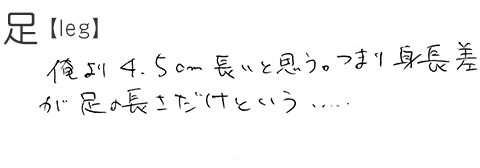 足【leg】
俺より4.5cm長いと思う。つまり身長差
が足の長さだけという.....